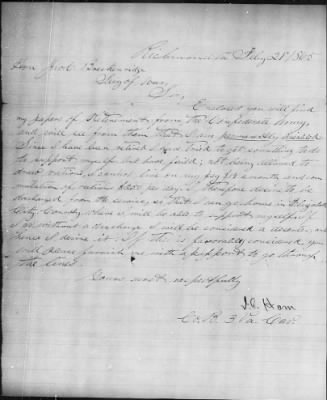 Richmond Va Feby 28/1865
Hon Jno C Breckenridge
Secy of War,
Sir,
Enclosed you will find
my papers of Retirement from the Confederate
Army, and will see from them that I am permanently disabled
Since I have been retired I had tried to get something to do
to support myself but have failed; not being allowed to
draw rations, I cannot live on my pay per month and com
mutation of rations per day. I therefore desire to be
discharged from the service, so that I can go home in Elizabeth
City County where I will be able to support myself. If
I go without a discharge I will be considered a deserter and
hence I desire it. If this is favorably considered, you
will please furnish me with a passport to go through
the lines.
Yours most respectfully
Ham
Co. B. 3 Va Cav.